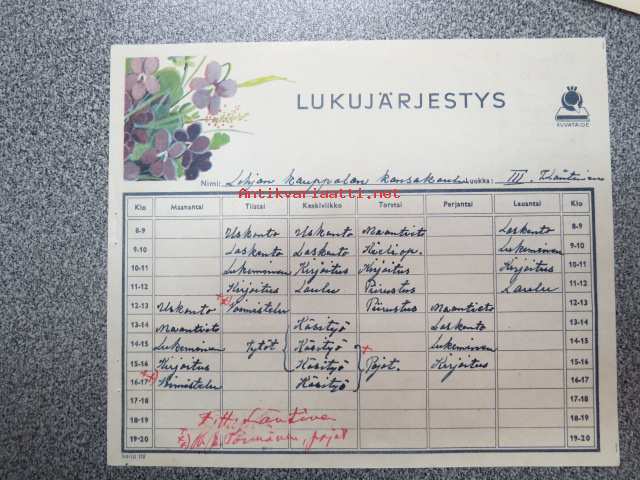 LUKUJÄRJESTYS
KUVATAIDE
Nimi: Lohjan kauppalan kansakoulu Luokka: III.
Antikvariaatti.net
Klo Maanantai Tiistai Keskiviikko Torstai Perjantai Lauantai Klo
8-9 Uskonto Uskonto Maantieto Laskento 8-9
9-10 Laskento Laskento Kieliop. Lukeminen 9-10
10-11 Lukeminen Kirjoitus Kirjoitus Kirjoitus 10-11
11-12 Kirjoitus Laulu Piirustus Laulu 11-12
12-13 Uskonto x) Voimistelu Piirustus Maantieto 12-13
13-14 Maantieto Käsityö Laskento 13-14
14-15 Lukeminen Tytöt Käsityö Lukeminen 14-15
15-16 Kirjoitus Käsityö Pojat. Kirjoitus 15-16
16-17 Voimistelu Käsityö 16-17
17-18 17-18
18-19 18-19
19-20 pojat 19-20